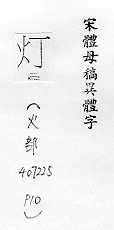 宋體母稿異體字
灯
(火部
407225
P10)